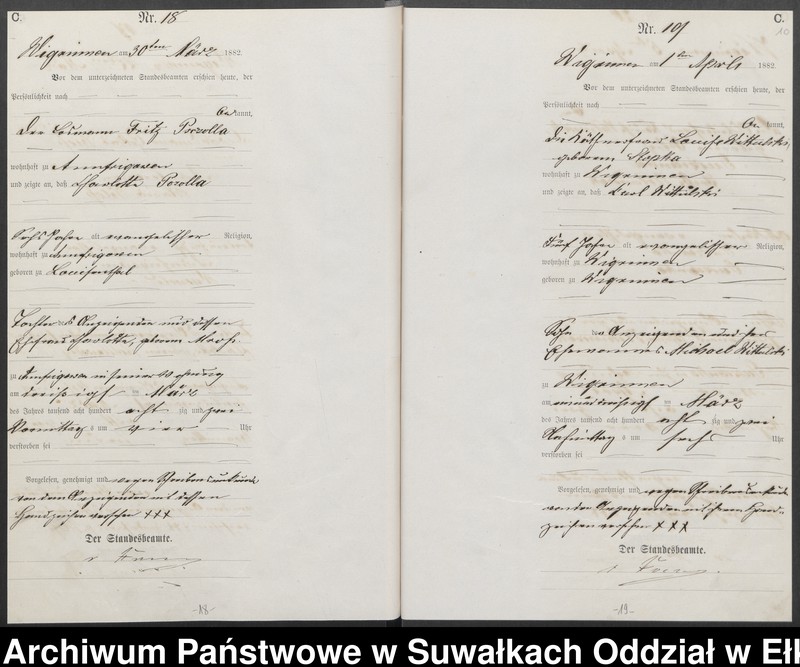 C.
Nr. 18
am 30ten März 1882.
Vor dem unterzeichneten Standesbeamten erschien heute, der
Persönlichkeit nach
kannt,
Der Losmann Fritz
wohnhaft zu
und zeigte an, daß Charlotte
Sechs Jahre alt evangelischer Religion,
wohnhaft zu
geboren zu Louisenthal
Tochter des Anzeigenden und dessen
Ehefrau Charlotte, geboren
zu in seiner Wohnung
am dreißigsten März
des Jahres tausend acht hundert acht zig und zwei
Vormittag s um vier Uhr
verstorben sei
Vorgelesen, genehmigt und wegen Schreibensunkunde
von dem Anzeigenden mit dessen
Handzeichen versehen XXX
Der Standesbeamte.
-18-
C.
Nr. 19
10
am 1ten April 1882.
Vor dem unterzeichneten Standesbeamten erschien heute, der
Persönlichkeit nach
kannt,
Die Käthnerfrau Louise Kittulski,
geborene
wohnhaft zu
und zeigte an, daß Karl Kittulski
Fünf Jahre alt evangelischer Religion,
wohnhaft zu
geboren zu
Sohn der Anzeigenden und ihres
Ehemannes Michael Kittulski
zu
am einunddreißigst en März
des Jahres tausend acht hundert acht zig und zwei
Nachmittag s um sechs Uhr
verstorben sei
Vorgelesen, genehmigt und wegen Schreibensunkunde
von der Anzeigenden mit ihrem Hand-
zeichen versehen XXX
Der Standesbeamte.
-19-
Archiwum Państwowe w Suwałkach Oddział w Eł